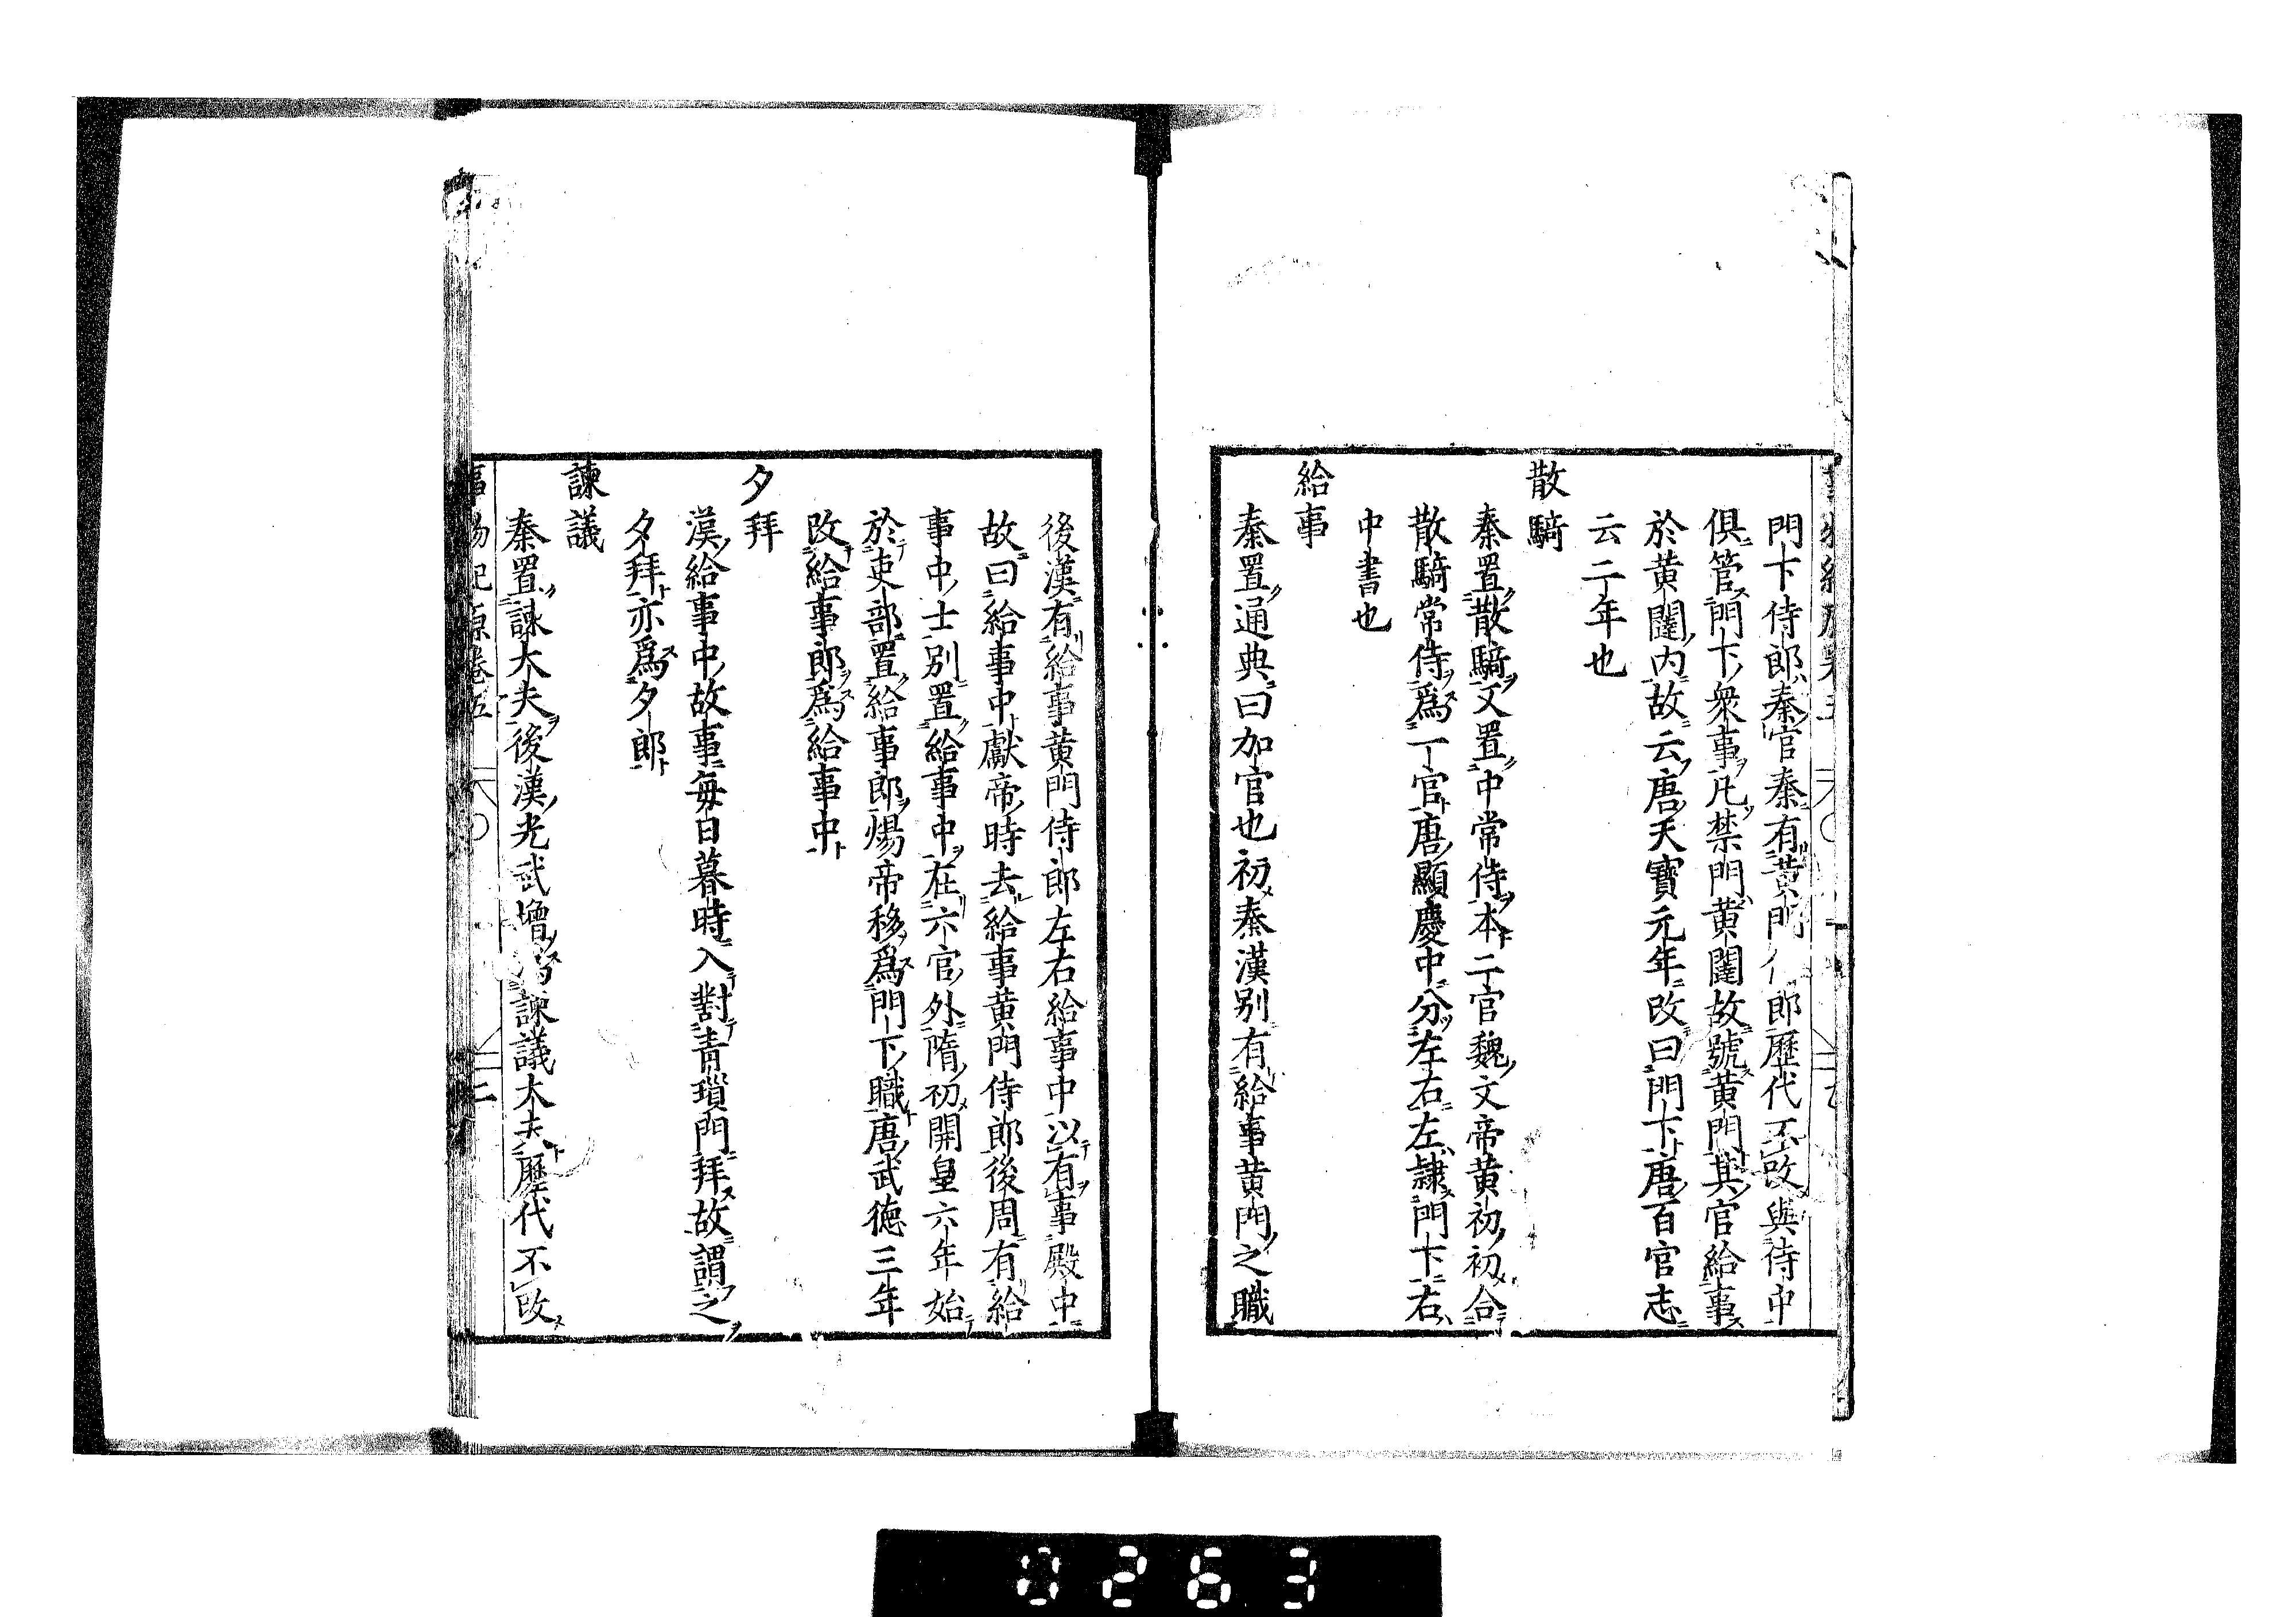 門下侍郎秦官秦有黄門侍郎歷代不改與侍中
俱管門下衆事凡禁門黄闥故號黄門其官給事
於黄闥内故云唐天寶元年改曰門下唐百官志
云二年也
散騎
秦置散騎又置中常侍本二官魏文帝黄初初合
散騎常侍爲一官唐顯慶中分左右左隷門下右
中書也
給事
秦置通典曰加官也初秦漢別有給事黄門之職
後漢有給事黄門侍郎左右給事中以有事殿中
故曰給事中獻帝時去給事黄門侍郎後周有給
事中士別置給事中在六官外隋初開皇六年始
於吏部置給事郎煬帝移爲門下職唐武德三年
改給事郎爲給事中
夕拜
漢給事中故事毎日暮時入對青瑣門拜故謂之
夕拜亦爲夕郎
諫議
秦置諫大夫後漢光武增爲諫議大夫歷代不改
事物紀原卷五
二
0263